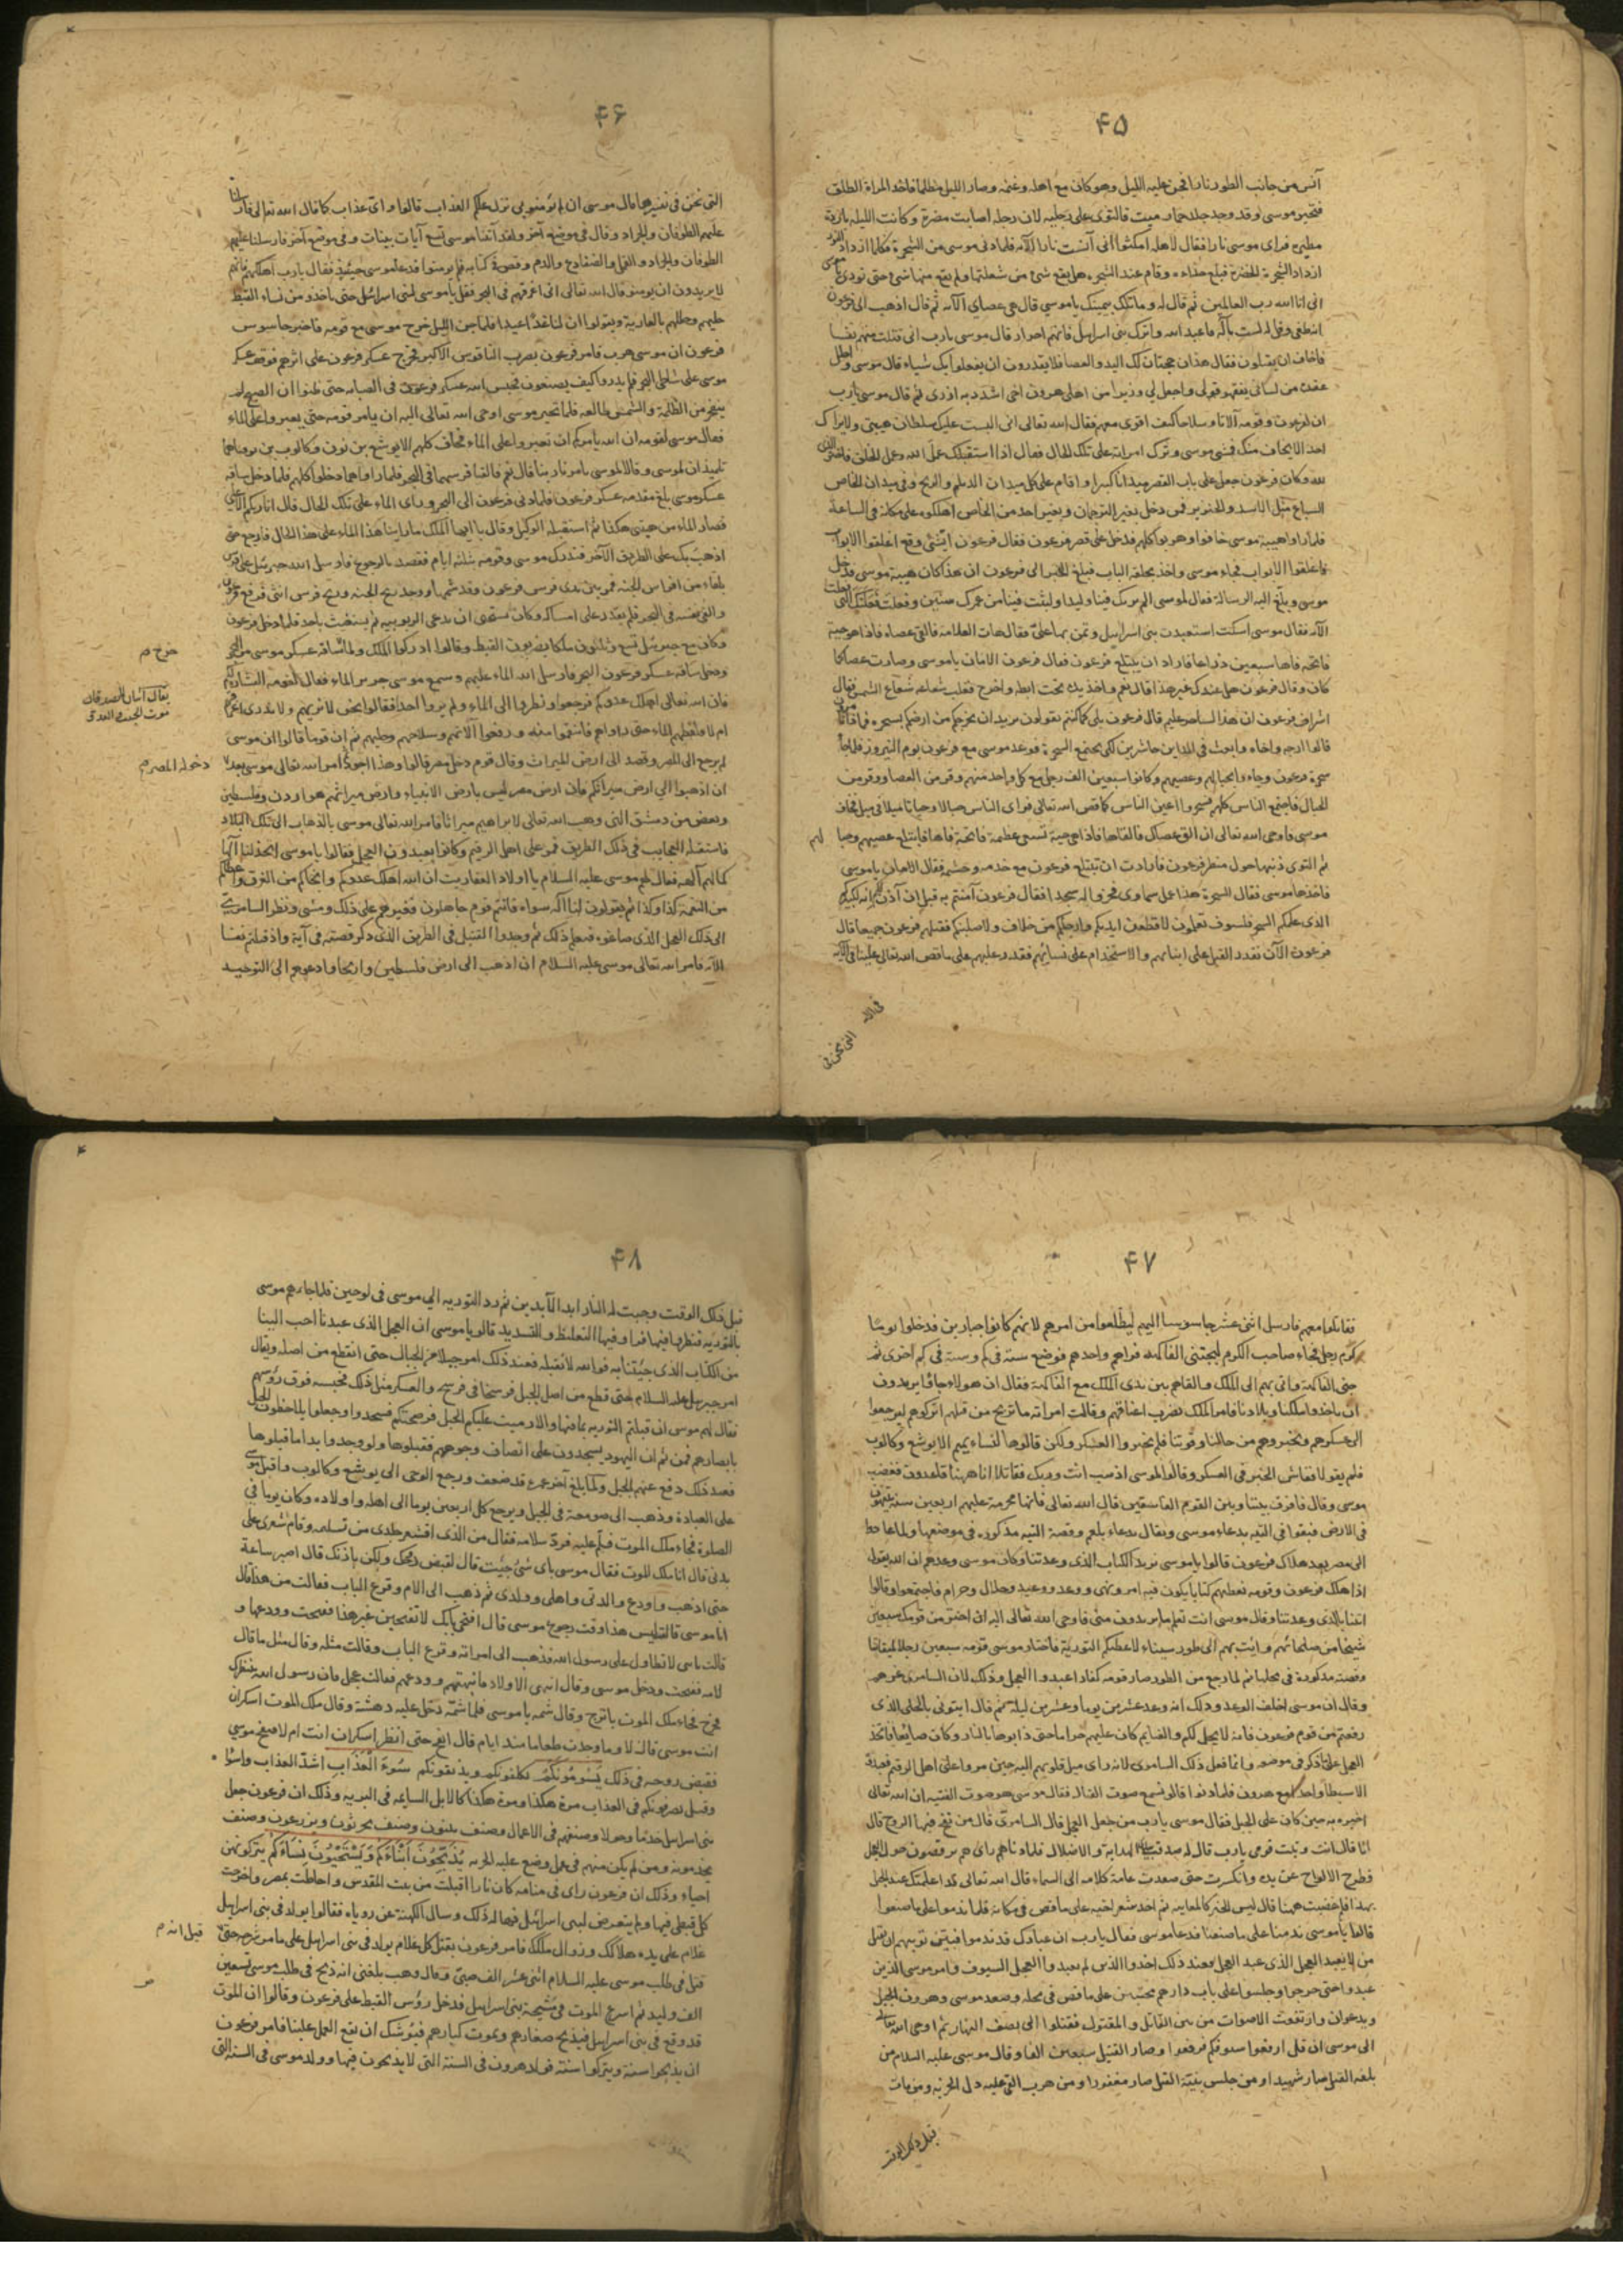 ۴۵
آنس من جانب الطور نارا فجن عليه الليل وهو كان مع اهله وغنمه وصار الليل مظلما فاخذ المراة الطلق
فتحير موسى وقد وجد جلد حمار ميت فالتوى على رجليه لان رجله اصابت مضرة وكانت الليلة باردة
مطيرة فراى موسى نارا فقال لاهله امكثوا انى آنست نارا الآية فلما دنى موسى من الشجرة فكلما ازداد النور
ازداد الشجرة الخضرة فبلغ حذاءه وقام عند الشجرة هل يقع شئ من شعلتها ولم يقع منها شئ حتى نودى يا موسى
انى انا الله رب العالمين ثم قال له وما تلك بيمينك يا موسى قال هى عصاي الآية ثم قال اذهب الى فرعون
انه طغى وقل له لست باله فاعبد الله واترك بنى اسرائيل فانهم احرار قال موسى يا رب انى قتلت منهم نفسا
فاخاف ان يقتلون فقال هذان حجتان لك اليد والعصا فلا يقدرون ان يفعلوا بك شيئا قال موسى واحلل
عقدة من لسانى يفقهوا قولى واجعل لى وزيرا من اهلى هرون اخى اشدد به ازرى ثم قال موسى يا رب
ان لفرعون وقومه آلات وسلاحا كيف اقوى معهم فقال الله تعالى انى البست عليك سلطان هيبتى ولا يراك
احد الا يخاف منك فمشى موسى وترك امراته على تلك الحال
لله وكان فرعون جعل على باب القصر ميدانا كبيرا واقام على كل ميدان
السباع مثل الاسد والخنزير فمن دخل بغير الترجمان وبغير احد من الخاص اهلكوه على مكانه فى الساعة
فلما راوا هيبة موسى خافوا وهربوا كلهم فدخل على قصر فرعون فقال فرعون اىّ شئ وقع اغلقوا الابواب
فاغلقوا الابواب فجاء موسى واخذ بحلقة الباب فبلغ الخبر الى فرعون ان هذا كان هيبة موسى فدخل
موسى وبلغ اليه الرسالة فقال لموسى الم نربك فينا وليدا ولبثت فينا من عمرك سنين وفعلت فعلتك التى
الآية فقال موسى اسكت استعبدت بنى اسرائيل وتمن بها علىّ فقال هات العلامة فالقى عصاه فاذا هو حية
فاتحة فاها سبعين ذراعا فاراد ان يبتلع فرعون فقال فرعون الامان يا موسى وصارت عصا كما
كان وقال فرعون هل عندك غير هذا قال نعم واخذ يده تحت ابطه واخرج فغلب شعاعه شعاع الشمس فقال
اشراف فرعون ان هذا لساحر عليم قال فرعون بلى كما كنتم تقولون يريد ان يخرجكم من ارضكم بسحره فماذا تامرون
قالوا ارجه واخاه وابعث فى المداين حاشرين لكى يجتمع السحرة فوعد موسى مع فرعون يوم النيروز فلما جاء
سحرة فرعون وجاءوا بحبالهم وعصيهم وكانوا سبعين الف رجل مع كل واحد منهم وقر من العصا ووقر من
الحبال فاجتمع الناس كلهم فسحروا اعين الناس كما قص الله تعالى فراى الناس حبالا وحياتا ميلا فى ميل فخاف
موسى فاوحى الله تعالى ان الق عصاك فالقاها فاذا هى حية تسعى عظيمة فاتحة فاها فابتلع عصيهم وحبا لهم
ثم التوى ذنبها حول منظر فرعون فارادت ان تبتلع فرعون مع خدمه وحشمه فقال الامان يا موسى
فاخذها موسى فقال السحرة هذا عمل سماوى فخروا له سجدا فقال فرعون آمنتم به قبل ان آذن لكم انه لكبيركم
الذى علمكم السحر فلسوف تعلمون لاقطعن ايديكم وارجلكم من خلاف ولاصلبنكم فقتلهم فرعون جميعا قال
فرعون الآن نقدر القتل على ابنائهم والاستخدام على نسائهم فقدر عليهم على ما قص الله تعالى علينا فى الآية
فى الآية التى نحن فى
۴۶
التى نحن فى تفسيرها قال موسى ان لم تؤمنوا بى نزل عليكم العذاب قالوا واىّ عذاب كما قال الله تعالى فارسلنا
عليهم الطوفان والجراد وقال فى موضع آخر ولقد آتينا موسى تسع آيات بينات وفى موضع آخر فارسلنا عليهم
الطوفان والجراد والقمل والضفادع والدم وقصة فى كتابه فلم يؤمنوا فدعا موسى حينئذ فقال يا رب اهلكهم فانهم
لا يريدون ان يؤمنوا قال الله تعالى انى اغرقهم فى البحر فقل يا موسى لبنى اسرائيل حتى ياخذوا من نساء القبط
حليهم وحللهم بالعارية ويقولوا ان لنا غدًا عيدا فلما جن الليل خرج موسى مع قومه فاخبر جاسوس
فرعون ان موسى هرب فامر فرعون بضرب الناقوس الاكبر فخرج عسكر فرعون على اثرهم فوقف عسكر
موسى على شاطئ البحر فلم يدروا كيف يصنعون فحبس الله عسكر فرعون فى الضبابة حتى ظنوا ان الصبح لم
ينفجر من الظلمة والشمس طالعة فلما تحير موسى اوحى الله تعالى اليه ان يامر قومه حتى يعبروا على الماء
فقال موسى لقومه ان الله يامركم ان تعبروا على الماء فخاف كلهم الا يوشع بن نون وكالوب بن يوفنا هما
تلميذان لموسى وقالا لموسى بامر ربنا قال نعم فالقيا فرسهما فى البحر فلما راواهما دخلوا كلهم فلما دخل ساقة
عسكر موسى بلغ مقدمة عسكر فرعون فلما دنى فرعون الى البحر وراى الماء على تلك الحال قال انا ربكم الاعلى
فصار الماء من هيبتى هكذا ثم استقبله الوكيل وقال يا ايها الملك ما راينا هذا الماء على هذا الحال فارجع حتى
اذهب بك على الطريق الآخر فتدرك موسى وقومه ثلثة ايام فقصد بالرجوع فارسل الله جبرئيل على فرس
بلقاء من افراس الجنة فمر بين يدى فرس فرعون
والقى نفسه فى البحر فلم يقدر على امساكه وكان يستحيى ان يدعى الربوبية ثم يستغيث باحد فلما دخل فرعون
وكان مع جبرئيل تسع وثلثون ملكا يضربون القبط وقالوا ادركوا الملك ولما ساقة عسكر موسى من البحر
خرج صح
ودخل ساقة عسكر فرعون البحر فارسل الله الماء عليهم وسمع موسى جرير الماء فقال لقومه البشارة لكم
فان الله تعالى اهلك عدوكم فرجعوا ونظروا الى الماء ولم يروا احدا فقالوا نحن لا نريهم ولا ندرى اغرقهم
يقال اثنان لا يصدقان
موت الجند والعدو
ام لا فلفظهم الماء حتى راواهم فانتقموا منهم ورفعوا آلاتهم وسلاحهم وحليهم ثم ان قوما قالوا ان موسى
لم يرجع الى المصر وقصد الى ارض الميراث وقال قوم دخل مصر قالوا وهذا اجود ثم امر الله تعالى موسى بعد
دخوله المصر صح
ان اذهبوا الى ارض ميراثكم فان ارض مصر ليس بارض الانبياء وارض ميراثهم هو اردن وفلسطين
وبعض من دمشق التى وهب الله تعالى لابراهيم ميراثا فامر الله تعالى موسى بالذهاب الى تلك البلاد
فاستقبله العجايب فى ذلك الطريق فمر على اهل الرقيم وكانوا يعبدون العجل فقالوا يا موسى اتخذ لنا آلها
كما لهم آلهة فقال لهم موسى عليه السلام يا اولاد العفاريت ان الله اهلك عدوكم وانجاكم من الغرق واعطاكم
من النعمة كذا وكذا ثم يقولون لنا اله سواه فانتم قوم جاهلون فغيرهم على ذلك ومشى ونظر السامرى
الى ذلك العجل الذى صاغوه فعمل ذلك ثم وجدوا القتيل فى الطريق الذى ذكر قصته فى آية واذ قتلتم نفسا
الآية فامر الله تعالى موسى عليه السلام ان اذهب الى ارض فلسطين واريحا وادعوهم الى التوحيد
۴۷
فقاتلوا معهم فارسل اثنى عشر جاسوسا اليهم ليطّلعوا من امرهم لانهم كانوا جبارين فدخلوا يوما
كرم رجل فجاء صاحب الكرم ليجتنى الفاكهة فراهم واحدهم فوضع ستة فى كم وستة فى كم اخرى ثم
جنى الفاكهة واتى بهم الى الملك والقاهم بين يدى الملك مع الفاكهة فقال ان هولاء جاءوا يريدون
ان ياخذوا ملكنا وبلادنا فامر الملك بضرب اعناقهم وقالت امراته ما تربح من قتلهم اتركوهم ليرجعوا
الى عسكرهم ويخبروهم من حالنا وقوتنا فلم يخبروا العسكر ولكن قالوها لنسائهم الا يوشع وكالوب
فلم يقولا ففاش الخبر فى العسكر وقالوا لموسى اذهب انت وربك فقاتلا انا ههنا قاعدون فغضب
موسى وقال فافرق بيننا وبين القوم الفاسقين قال الله تعالى فانها محرمة عليهم اربعين سنة يتيهون
فى الارض فبقوا فى التيه بدعاء موسى ويقال بدعاء بلعم وقصة التيه مذكورة فى موضعها ولما
الى مصر بعد هلاك فرعون قالوا يا موسى نريد الكتاب الذى وعدتنا وكان موسى وعدهم ان الله يقول
اذا هلك فرعون وقومه نعطيهم كتابا يكون فيه امر ونهى ووعد ووعيد وحلال وحرام فاجتمعوا وقالوا
اتنا بالذى وعدتنا وقال موسى انت تعلم ما يريدون منى فاوحى الله تعالى اليه ان اختر من قومك سبعين
شيخا من صلحائهم وايت بهم الى طور سيناء لاعطيكم التورية فاختار موسى قومه سبعين رجلا لميقاتنا
وقصته مذكورة فى محلها ثم لما رجع من الطور صار قومه كفارا عبدوا العجل وذلك لان السامرى غرهم
وقال ان موسى اخلف الوعد وذلك انه وعد عشرين يوما وعشرين ليلة ثم قال ايتونى بالحلى الذى
رفعتم من قوم فرعون فانه لا يحل لكم والغنايم كان عليهم حراما حتى ذابوها بالنار وكان صائغا فاتخذ
العجل على ما ذكر فى موضعه وانما فعل ذلك السامرى لانه راى ميل قلوبهم اليه حين مروا على اهل الرقيم فعبده
اخبره به حين كان على الجبل فقال موسى يا رب من جعل العجل قال السامرى قال من نفخ فيها الروح قال
انا قال انت وثبت قومى يا رب قال له صدقت
فطرح الالواح عن يده وانكسرت حتى صعدت عامة كلامه الى السماء قال الله تعالى قد اعلمتك عند الجبل
بهذا فلم غضبت ههنا قال ليس الخبر كالمعاينة ثم اخذ شعر اخيه على ما قص فى مكانه فلما ندموا على ما صنعوا
قالوا يا موسى ندمنا على ما صنعنا فدعا موسى فقال يا رب ان عبادك قد ندموا فبين توبتهم ان يقتل
من لا يعبد العجل الذى عبد العجل فعند ذلك اخذوا الذين لم يعبدوا العجل السيوف وامر موسى الذين
عبدوا حتى خرجوا وجلسوا على باب دارهم محتبين على ما قص فى محله وصعد موسى وهرون الجبل
ويدعوان وارتفعت الاصوات من بين القاتل والمقتول فقتلوا الى نصف النهار ثم اوحى الله تعالى
الى موسى ان قل ارفعوا سيوفكم فرفعوا وصار القتيل سبعين الفا وقال موسى عليه السلام من
بلغه القتل صار شهيدا ومن جلس بنية القتل صار مغفورا ومن هرب
قبل ذلك الوقت
۴۸
قبل ذلك الوقت وجبت له النار ابد الآبدين ثم رد التورية الى موسى فى لوحين فلما جاءهم موسى
بالتورية فنظروا فيها فراوا فيها التغليظ والتشديد قالوا يا موسى ان العجل الذى عبدنا احب الينا
من الكتاب الذى جئتنا به فوالله لا نقبله فعند ذلك امر جبلا من الجبال حتى انقطع من اصله ويقال
امر جبرئيل عليه السلام حتى قطع من اصل الجبل فرسخا فى فرسخ والعسكر مثل ذلك فحبسه فوق رؤسهم
فقال لهم موسى ان قبلتم التورية بما فيها والا رميت عليكم الجبل فرضختكم فسجدوا وجعلوا يلاحظون الجبل
بابصارهم فمن ثم ان اليهود يسجدون على انصاف وجوههم فقبلوها ولو وجدوا بدا ما قبلوها
فعند ذلك دفع عنهم الجبل ولما بلغ آخر عمره قد ضعف ورجع الوحى الى يوشع وكالوب واقبل موسى
على العبادة وذهب الى صومعة فى الجبل ويرجع كل اربعين يوما الى اهله واولاده وكان يوما فى
الصلوة فجاء ملك الموت فسلم عليه فردّ سلامه فقال من الذى اقشعر جلدى من تسليمه وقام شعرى على
بدنى قال انا ملك الموت فقال موسى باى شئ جئت قال لقبض روحك ولكن باذنك قال اصبر ساعة
حتى اذهب واودع والدتى واهلى وولدى ثم ذهب الى الام وقرع الباب فقالت من هذا قال
انا موسى قالت ليس هذا وقت رجوع موسى قال افتحى بابك لا تفتحين غير هذا ففتحت وودعها و
امه ففتحت ودخل موسى وقال
فخرج فجاء ملك الموت باترج وقال شمه يا موسى فلما شمّه دخل عليه دهشة وقال ملك الموت اسكران
انت موسى قال لا وما وجدت طعاما منذ ايام قال انفخ حتى انظر اسكران انت ام لا فنفخ موسى
فقبض روحه فى ذلك يَسُومُونَكُمْ يكلفونكم ويذيقونكم سُوءَ الْعَذَابِ اشدّ العذاب واسوأ
وقيل يصرفونكم فى العذاب مرة هكذا ومرة هكذا كالابل السايمة فى البرية وذلك ان فرعون جعل
بنى اسرائيل خدما وخولا وصنفهم فى الاعمال وصنف يبنون وصنف يحرثون ويزرعون وصنف
يخدمونه ومن لم يكن منهم فى عمل وضع عليه الجزية يُذَبِّحُونَ اَبْنَاءَكُمْ وَيَسْتَحْيُونَ نِسَاءَكُمْ يتركونهن
احياء وذلك ان فرعون راى فى منامه كان نارا اقبلت من بيت المقدس واحاطت بمصر واخرجت
كل قبطى فيها ولم يتعرض لبنى اسرائيل فهاله ذلك وسال الكهنة عن روياه فقالوا يولد فى بنى اسرائيل
غلام على يده هلاكك وزوال ملكك فامر فرعون بقتل كل غلام يولد فى بنى اسرائيل على ما مر شرحه حتى
قيل انه صح
قتل فى طلب موسى عليه السلام اثنى عشر الف صبىّ وقال وهب بلغنى انه ذبح فى طلب موسى تسعين
الف وليد ثم اسرع الموت فى مشيخة بنى اسرائيل فدخل رؤس القبط على فرعون وقالوا ان الموت
قد وقع فى بنى اسرائيل فيذبح صغارهم ويموت كبارهم فيوشك ان يقع العمل علينا فامر فرعون
ان يذبحوا سنة ويتركوا سنة فولد هرون فى السنة التى لا يذبحون فيها وولد موسى فى السنة التى